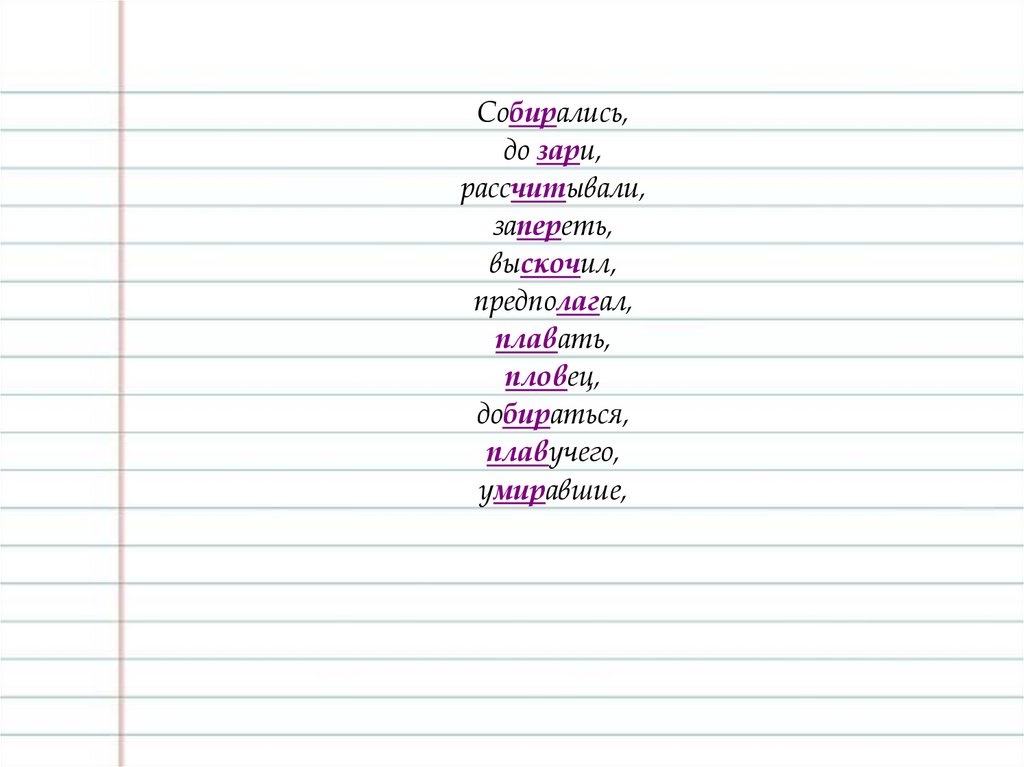 Собирались,
до зари,
рассчитывали,
запереть,
выскочил,
предполагал,
плавать,
пловец,
добираться,
плавучего,
умиравшие,